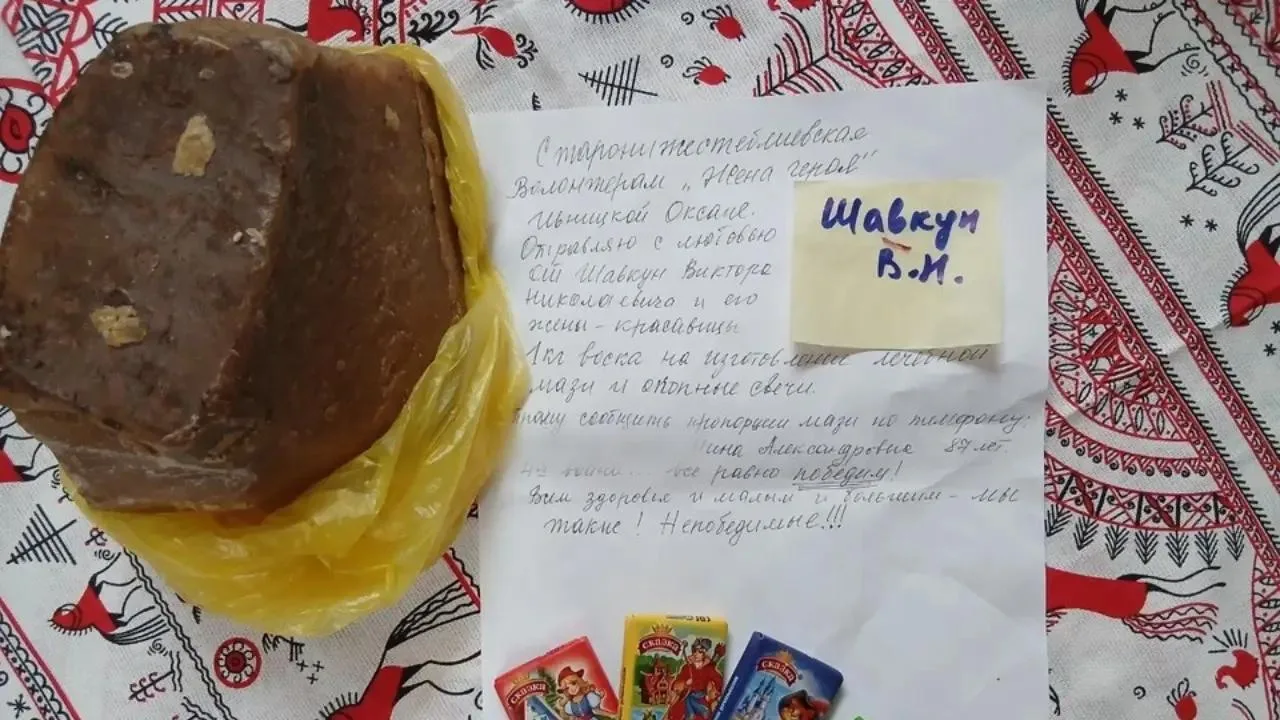 Старонижестеблиевская
Волонтерам „Жена героя"
Оксане.
Отправляю с любовью
от Шавкун Виктора
Николаевича и его
жены - красавицы
1 кг воска на изготовление лечебной
мази и окопные свечи.
Прошу сообщить пропорции мази по телефону:
Александровна 87 лет.
все равно победим!
Вам здоровья и малым и большим - мы
такие! Непобедимые!!!
Шавкун
В.Н.
СКАЗКА
СКАЗКА
СКАЗКА